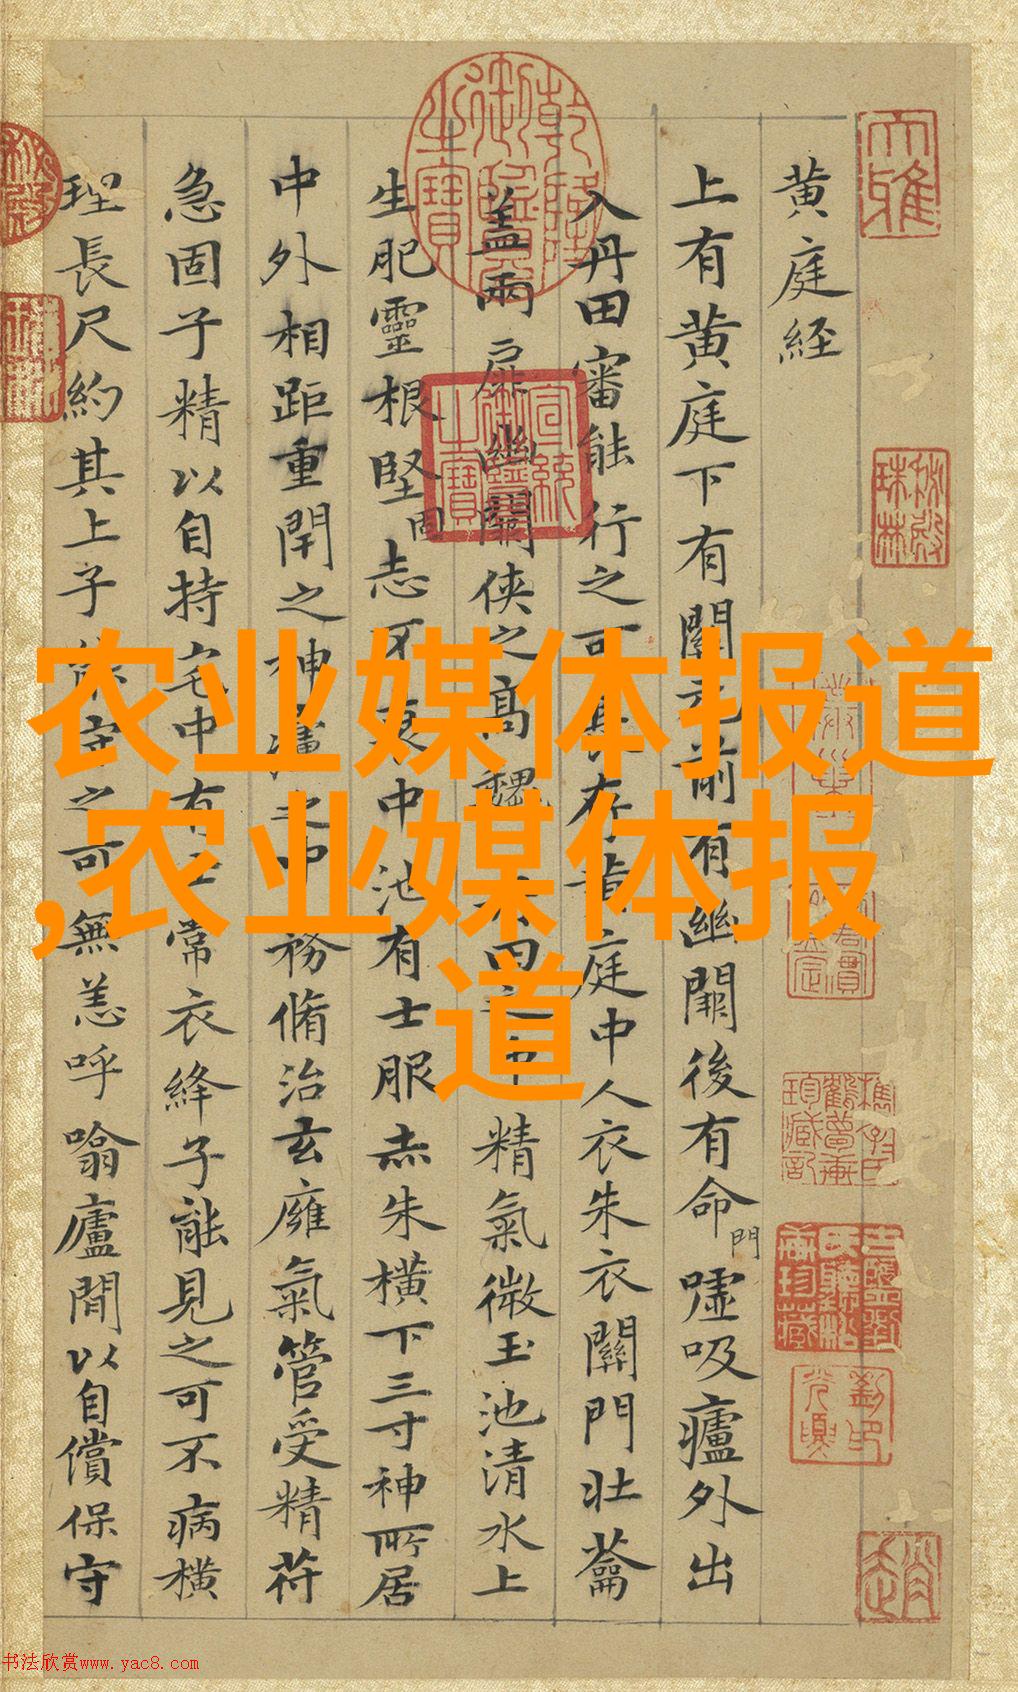 黄庭经
上有黄庭下有關元前有幽闕後有命門嘘吸廬外出
入丹田審能行之可長存黄庭中人衣朱衣關門壯蘥
蓋兩扉幽關侠之高魏丹田之中精氣微玉池清水上
生肥靈根堅固志不衰中池有士服赤朱横下三寸神所居
中外相距重閇之神廬之中務脩治玄癰氣管受精苻
急固子精以自持宅中有士常衣絳子能見之可不病横
理長尺約其上子能守之可無恙呼噏廬間以自償保守
乾隆御覽之寶
宣統御覽之寶
大雅
农业媒体报道
,农业媒体报
道
书法欣赏www.yac8.com